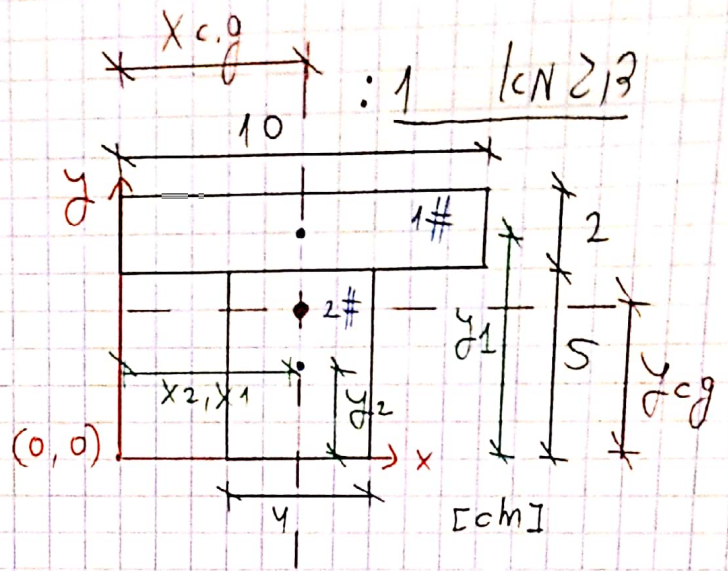 Xc.g
דוגמא 1:
10
y
1#
2
2#
y1
5
ycg
x2,x1
y2
(0,0)
x
4
[cm]